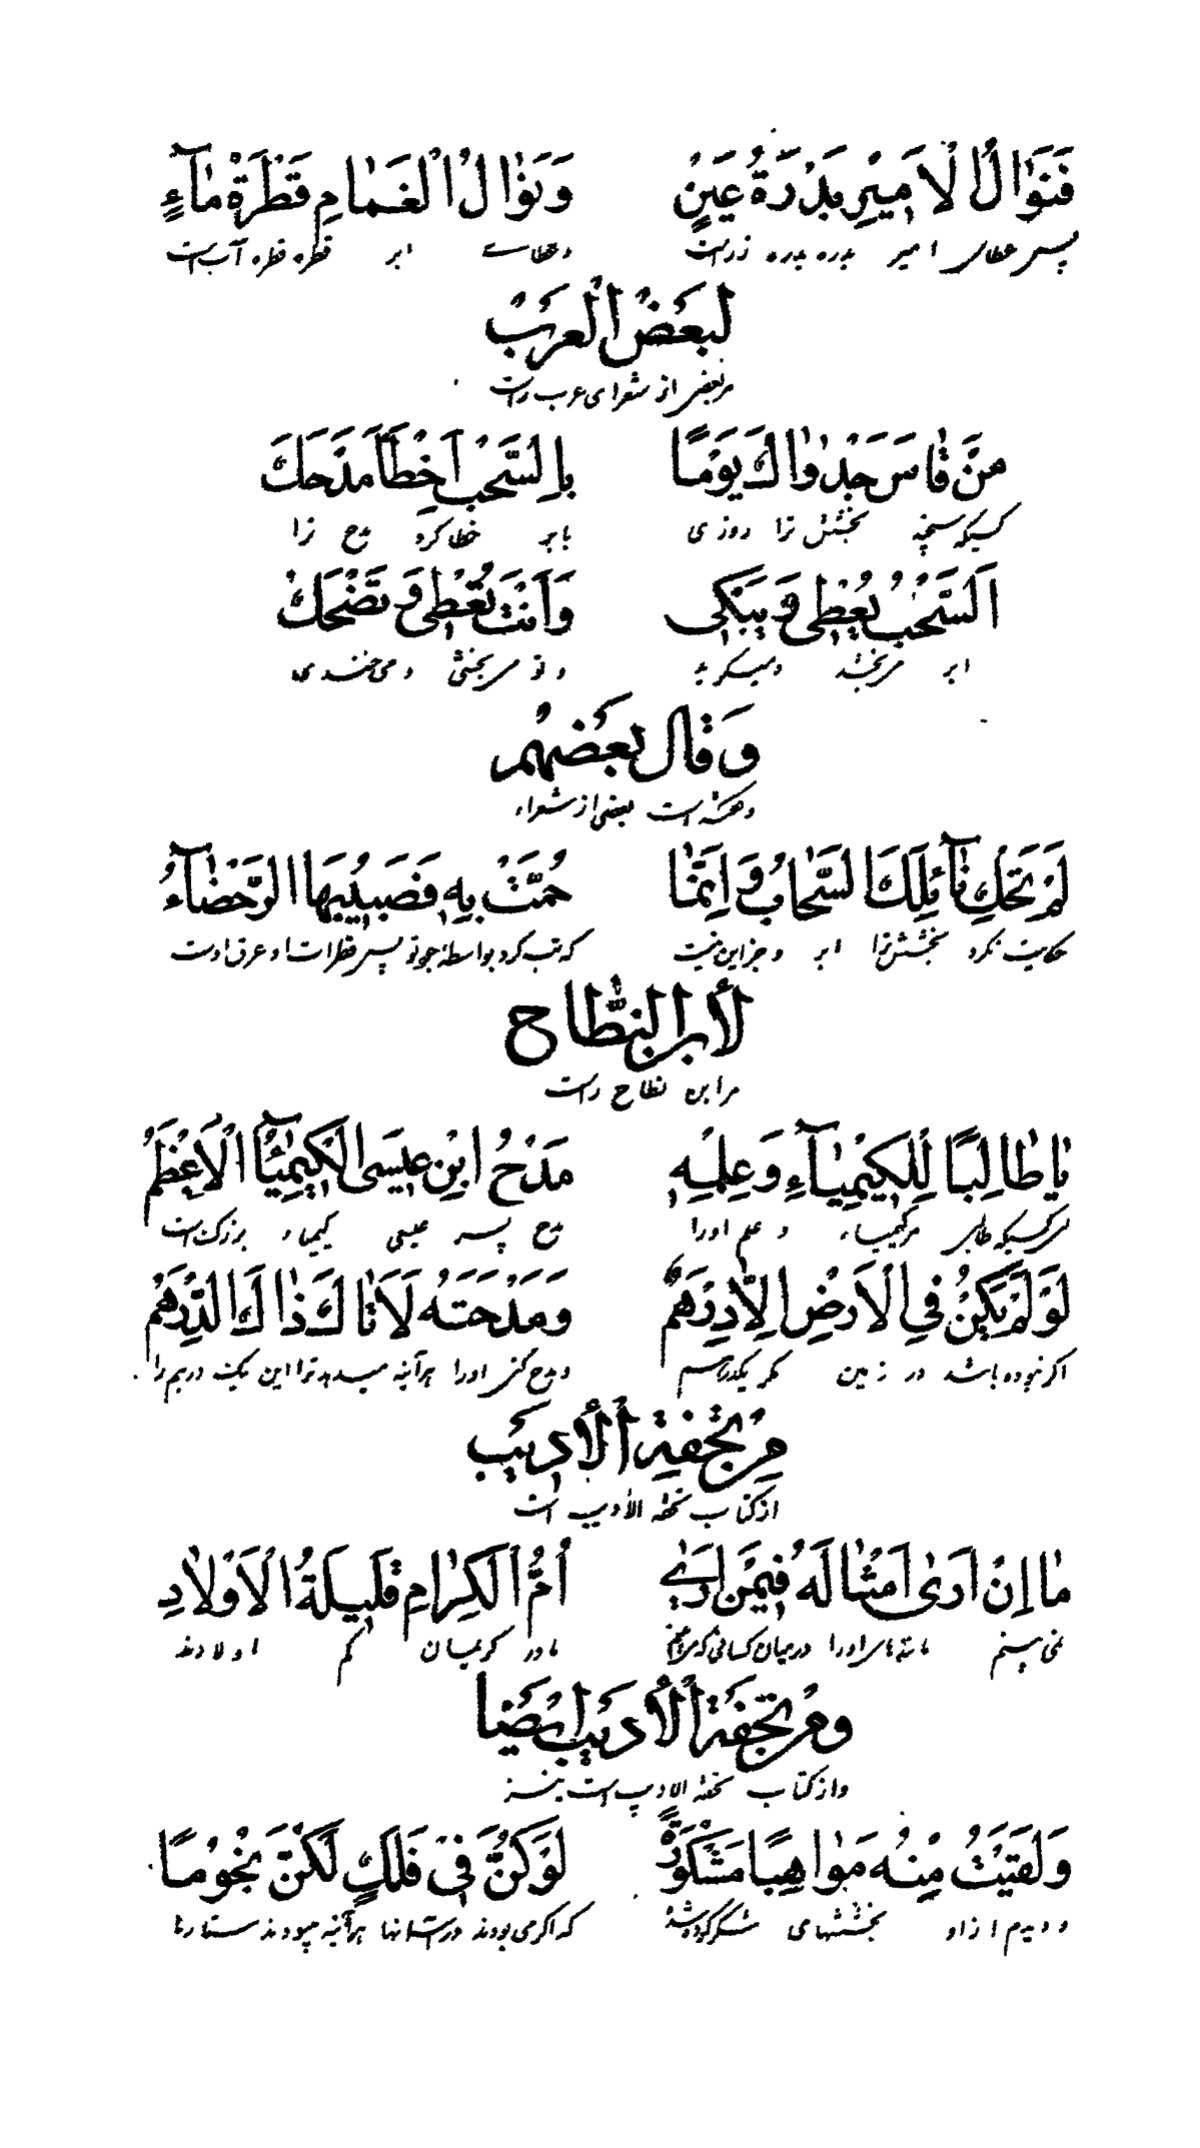 فَنَوَالُ الْأَمِيرِ بَدْرَةُ عَيْنٍ وَنَوَالُ الْغَمَامِ قَطْرَةُ مَآءٍ
پس عطای امیر بدره بدره زر است وعطاے ابر قطره قطره آب است
لبَعْضُ الْعَرَبْ
مر بعضی از شعرای عرب راست
مَنْ قَاسَ جَدْوَاكَ يَوْمًا بِالسُّحْبِ أَخْطَأَ مَدْحَكَ
کسیکه سنجد بخشش ترا روزی بابر خطا کرد مدح ترا
اَلسُّحْبُ يُعْطِي وَيَبْكِي وَأَنْتَ تُعْطِي وَتَضْحَكُ
ابر می بخشد ومیگرید و تو می بخشی و می خندی
وَقَالَ بَعْضُهُمْ
وگفته است بعضی از شعراء
لَمْ تَحْكِ نَآئِلَكَ السَّحَابُ وَإِنَّمَا حُمَّتْ بِهِ فَصَبِيبُهَا الرُّحَضَآءُ
حکایت نکرد بخشش ترا ابر وجز این نیست که تب کرد بواسطهٔ جود تو پس قطرات او عرق اوست
لأبن النطّاح
مر ابن نطاح راست
يَا طَالِبًا لِلْكِيمِيَآءِ وَعِلْمِهِ مَدْحُ ابْنِ عِيسَى الْكِيمِيَآءُ الْأَعْظَمُ
طالب مر کیمیاء و علم اورا مدح پسر عیسی کیمیاء بزرگ است
لَوْ لَمْ يَكُنْ فِي الْأَرْضِ إِلَّا دِرْهَمٌ وَمَدَحْتَهُ لَأَتَاكَ ذَاكَ الدِّرْهَمُ
اگر نبوده باشد در زمین مگر یکدرهم ومدح کنی اورا هرآینه میدهد ترا این یک درهم را
مِنْ تُحْفَةِ الْأَدِيبْ
از کتاب تحفه الادیب است
مَا إِنْ أَرَى أَمْثَالَهُ فِيمَنْ أَرَى أُمُّ الْكِرَامِ قَلِيلَةُ الْأَوْلَادِ
نمی بینم مانندهای اورا درمیان کسانی که مادر کریمان کم اولادند
ومِنْ تُحْفَةِ الْأَدِيبْ أَيْضًا
و از کتاب تحفهٔ الادیب است نیز
وَلَقِيتُ مِنْهُ مَوَاهِبًا مَشْكُورَةً لَوْ كُنَّ فِي فَلَكٍ لَكُنَّ نُجُومًا
و دیدم از او بخششهای شکر کرده شده که اگر می بودند در آسمانها هرآینه میبودند ستاره‌ها